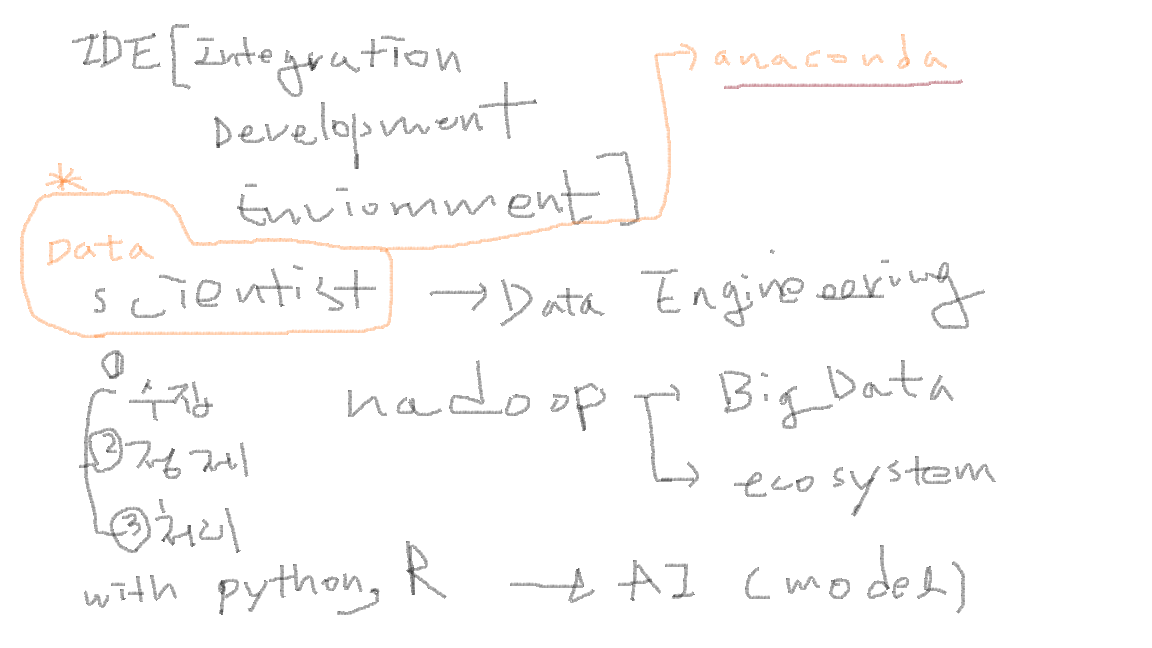 IDE [Integration
Development
Enviornment]
→ anaconda
*
Data
scientist → Data Engineering
① 수집
② 정제
③ 처리
hadoop → Big Data
→ ecosystem
with python, R → AI (model)